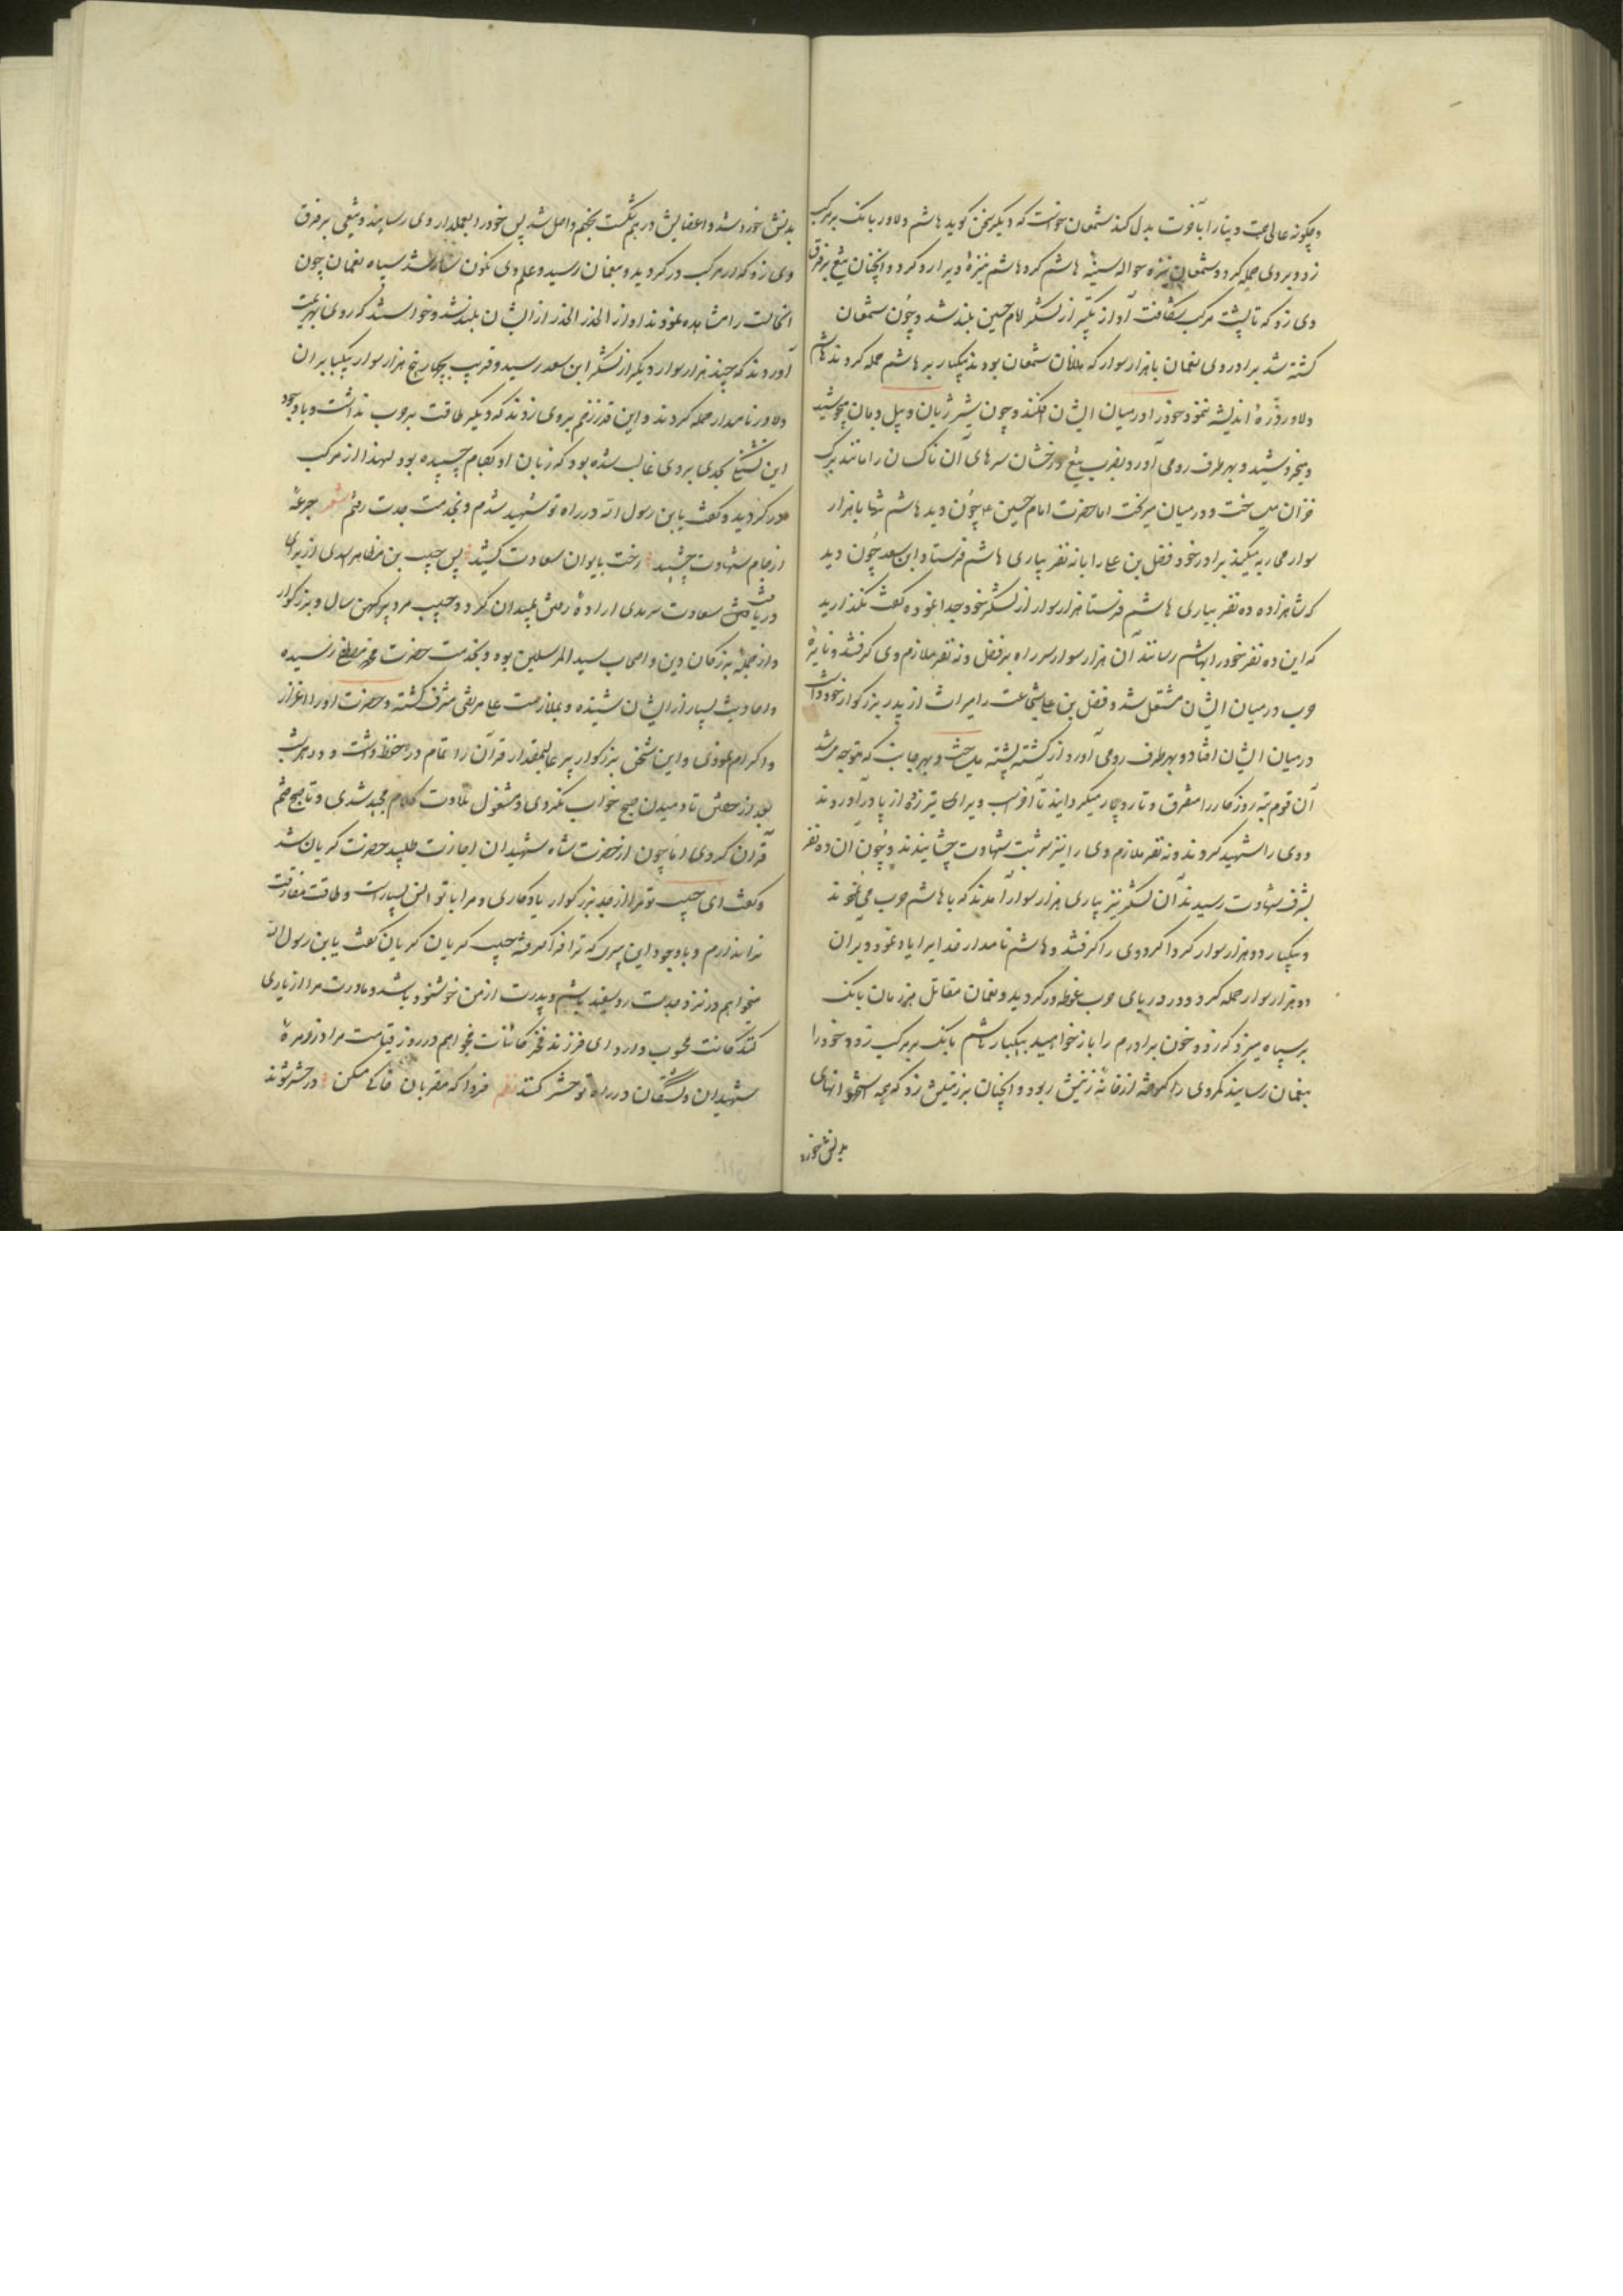 و چگونه عالی همت دینا را بآخرت بدل کند سمعان خواست که دیگر سخن کوید هاشم دلاور بانک بر مرکب
زد و بروی حمله کرد و سمعان نیزه حواله سینهٔ هاشم کرد هاشم نیزهٔ ویرا رد کرد و آنچنان تیغ بر فرق
وی زد که تا پشت مرکب بشکافت آواز تکبیر از لشکر امام حسین بلند شد و چون سمعان
کشته شد برادر وی نعمان با هزار سوار که ملازمان سمعان بودند بیکبار بر هاشم حمله کردند هاشم
دلاور ذرّهٔ اندیشه ننمود خود را در میان ایشان افکند و چون شیر ژیان و پیل دمان میجوشید
و میخروشید و بهر طرف رو می آورد بضرب تیغ درخشان سرهای آن ناکسان را مانند برک
خزان می ریخت و در میان اما حضرت امام حسین چون دید هاشم تنها با هزار
سوار محاربه میکند برادر خود فضل بن علی را با نه نفر بیاری هاشم فرستاد ابن سعد چون دید
که شاهزاده ده نفر بیاری هاشم فرستاد هزار سوار از لشکر خود جدا نموده گفت نگذارید
که این ده نفر خود را بهاشم رسانند آن هزار سوار سر راه بر فضل و نه نفر ملازم وی گرفتند و نایرهٔ
حرب در میان ایشان مشتعل شد و فضل بن علی شجاعت را میراث از پدر بزرگوار خود داشت
در میان ایشان افتاد و بهر طرف رو می آورد از کشته پشته می ساخت و بهر جانب که متوجه میشد
آن قوم تیره روزکار را متفرق و تار و مار میکردانید تا آخر اسب ویرا بی تیر زده از پا درآوردند
و وی را شهید کردند و نه نفر ملازم وی را نیز شربت شهادت چشانیدند و چون آن ده نفر
بشرف شهادت رسیدند آن لشکر نیز بیاری هزار سوار آمدند که با هاشم حرب می نمودند
و بیکبار دو هزار سوار کرداکرد وی را گرفتند و هاشم نامدار خدا را یاد نمود و بر آن
دو هزار سوار حمله کرد و در دریای حرب غوطه ور کردید و نعمان مقاتل هر زمان بانک
بر سپاه میزد که زود خون برادرم را باز خواهید بیکبار هاشم بانک بر مرکب زد و خود را
بنعمان رسانید کمر وی را گرفته از خانهٔ زینش ربود و آنچنان بر زمینش زد که همه استخوانهای
بدنش خورد
بدنش خورد شد و اعضایش درهم شکست بجهنم واصل شد پس خود را بعلمدار وی رسانید و تیغی بر فرق
وی زد که از مرکب در کردید و بنعمان رسید و علم وی نکون سار شد سپاه نعمان چون
آنحالت را مشاهده نمودند آواز الحذر الحذر از ایشان بلند شد و خواستند که روی بهزیمت
آورند که چند هزار سوار دیگر از لشکر ابن سعد رسید و قریب بچهار پنج هزار سوار بیکبار بر آن
دلاور نامدار حمله کردند و این قدر زخم بر وی زدند که دیگر طاقت حرب نداشت و با وجود
این تشنگی بحدی بر وی غالب شده بود که زبان او بکام چسپیده بود لهذا از مرکب
در کردید و گفت یا بن رسول الله در راه تو شهید شدم و بخدمت جدت رفتم شعر جرعهٔ
از جام شهادت چشید رخت بایوان سعادت کشید پس حبیب بن مظاهر اسدی از برای
دریافت سعادت سرمدی ارادهٔ رفتن بمیدان کرد و حبیب مرد پیر کهن سال و بزرگوار
و از جملهٔ بزرگان دین و اصحاب سید المرسلین بود و بخدمت حضرت محمد مصطفی رسیده
و احادیث بسیار از ایشان شنیده و بملازمت علی مرتضی مشرف گشته و حضرت او را اعزاز
و اکرام نمودی و این شخص بزرگوار پیر عالیمقدار قرآن را تمام در حفظ داشت و در هر شب
بعد از خفتن تا دمیدن صبح خواب نکردی و مشغول تلاوت کلام مجید شدی و تا صبح ختم
قرآن کردی اما چون از حضرت شاه شهیدان اجازت طلبید حضرت گریان شد
و گفت ای حبیب تو مرا از جد بزرگوار یادکاری و مرا با تو انس بسیار است و طاقت مفارقت
ترا ندارم و با وجود این پیری که ترا فرا گرفته حبیب گریان گریان گفت یا بن رسول الله
میخواهم در نزد جدت رو سفید باشم و پدرت از من خوشنود باشد و مادرت مرا از یاری
کنندکانت محسوب دارد ای فرزند فخر کائنات میخواهم در روز قیامت مرا در زمرهٔ
شهیدان و کشتکان در راه تو حشر کنند نظم فردا که مقربان خاکی مسکن در حشر شوند